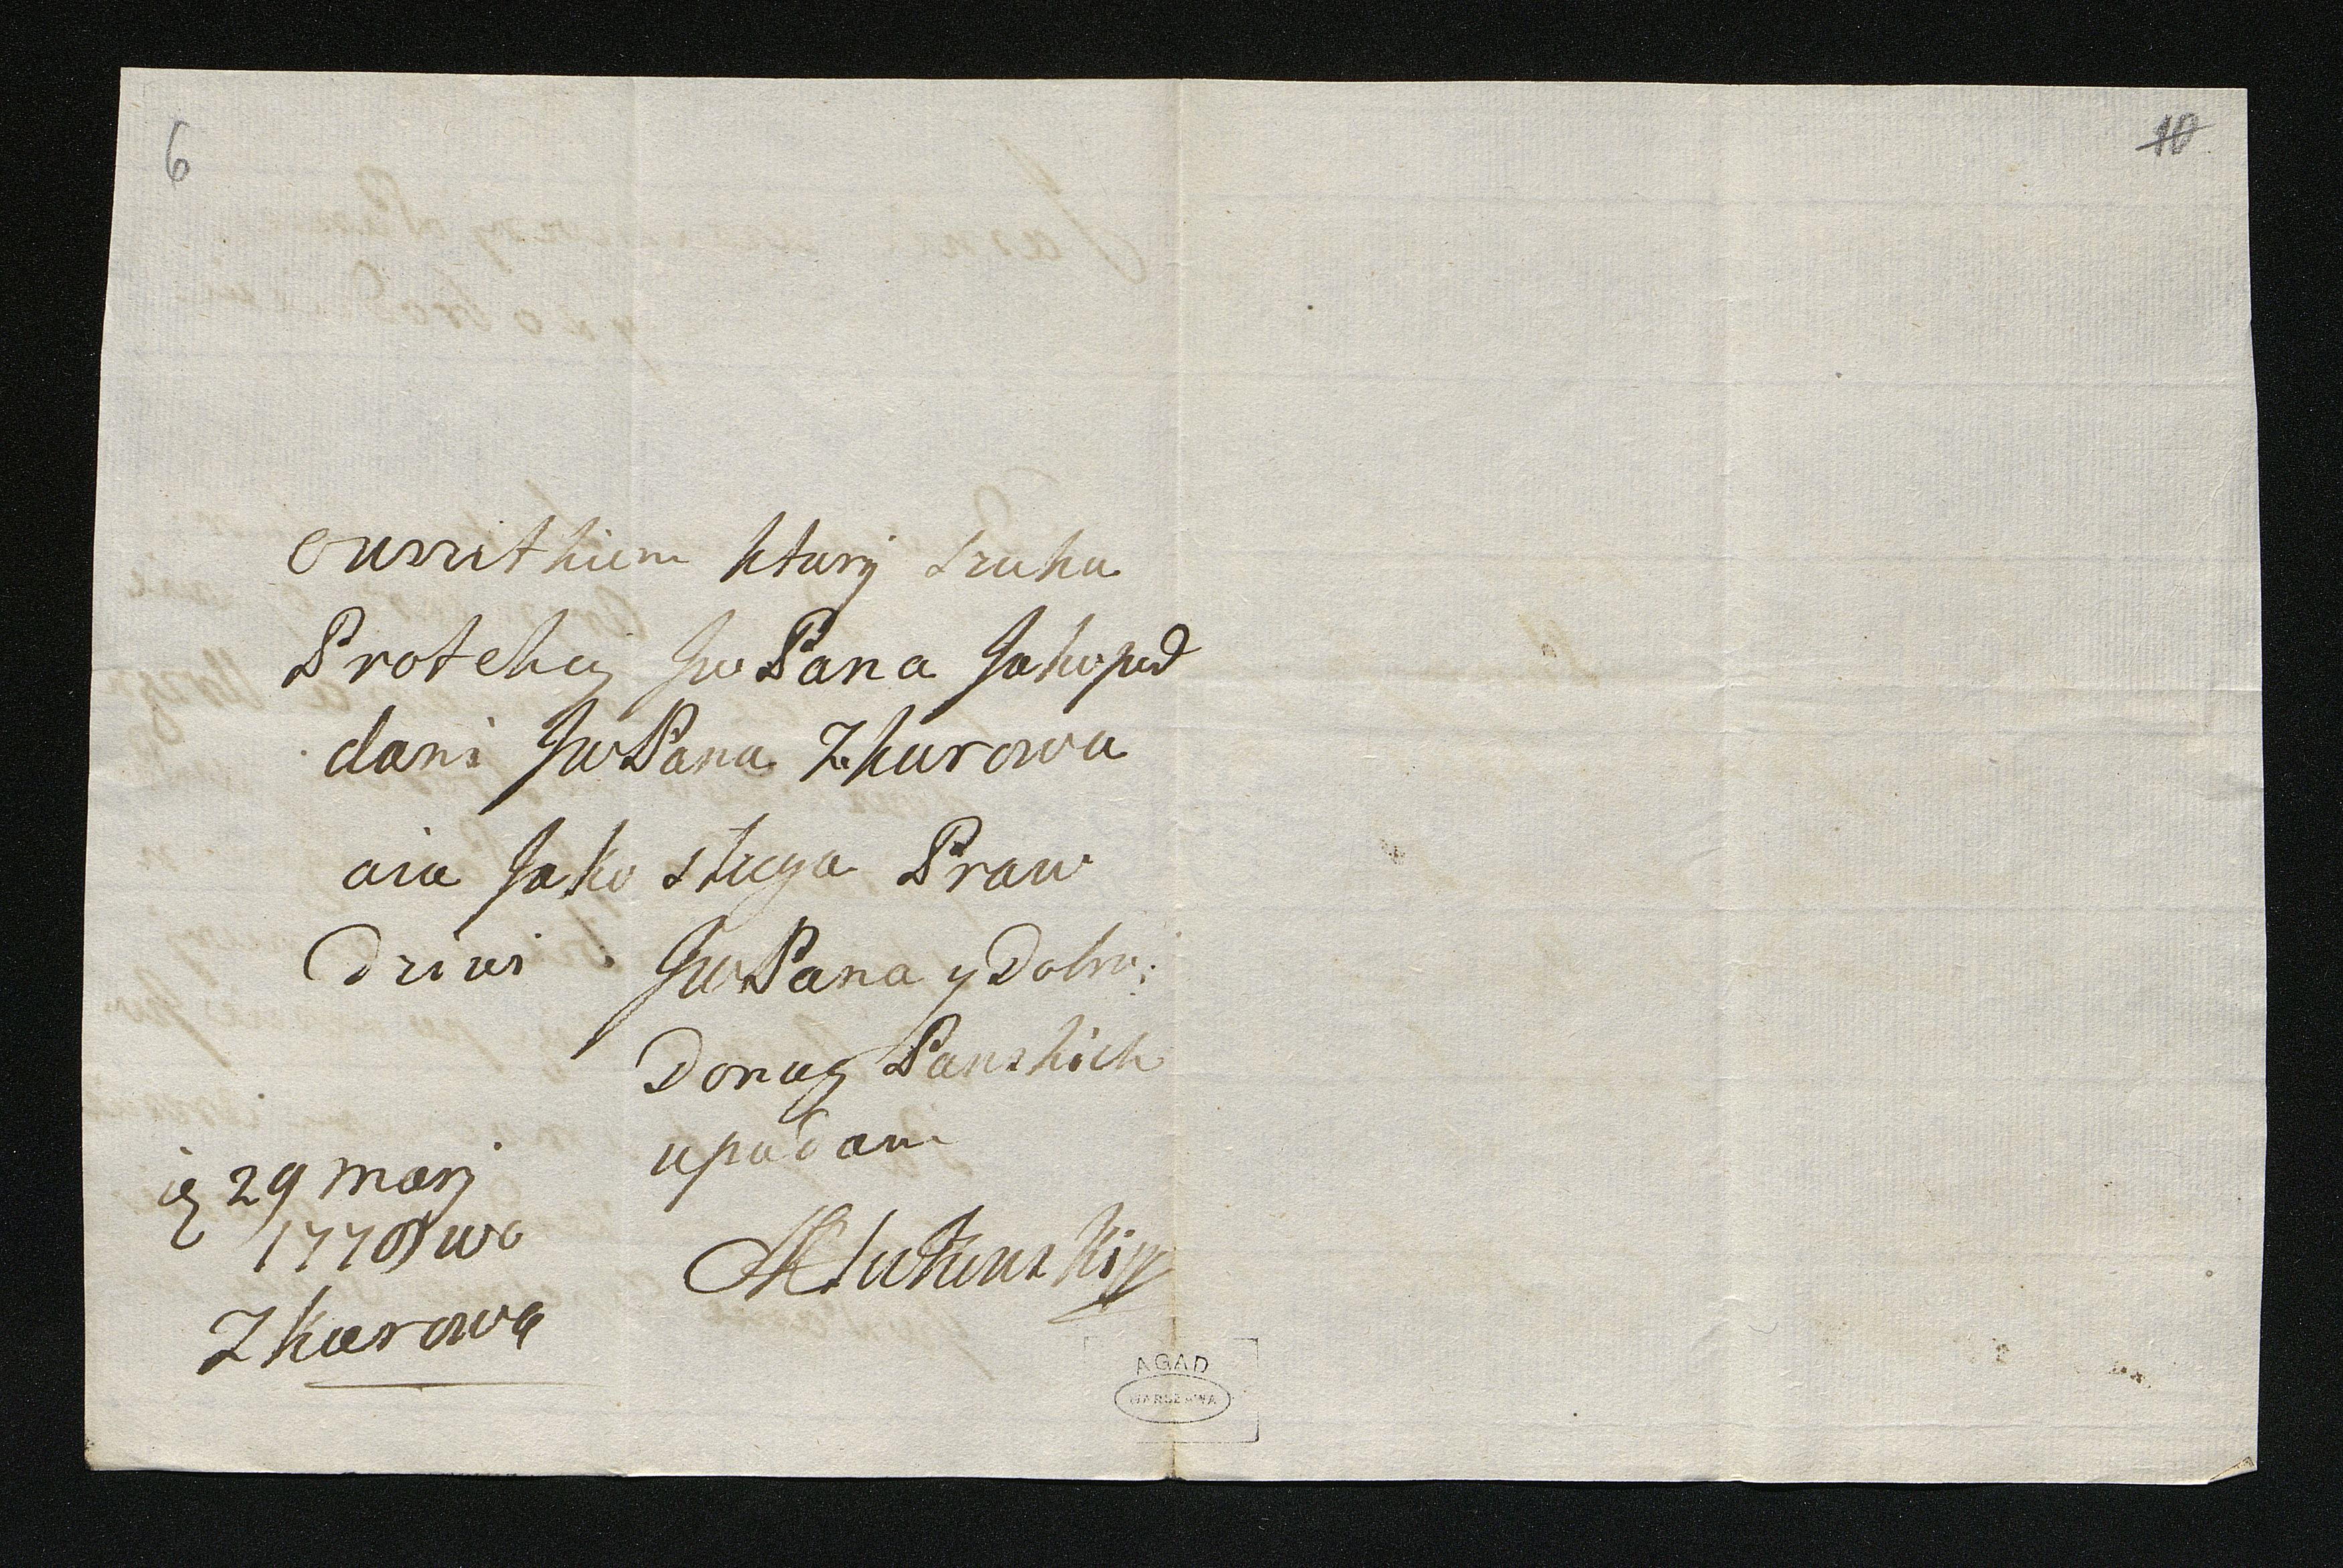 6
10
owszitkiem ktury szuka
Protekcij Jw Pana Jako pod
dani Jw Pana Zkurowa
aia Jako sługa Praw
dziwi Jw Pana y Dobro:
Donug Panskich
upadam
29 Marj
1770 we
Zkurowa
AGAD
WARSZAWA